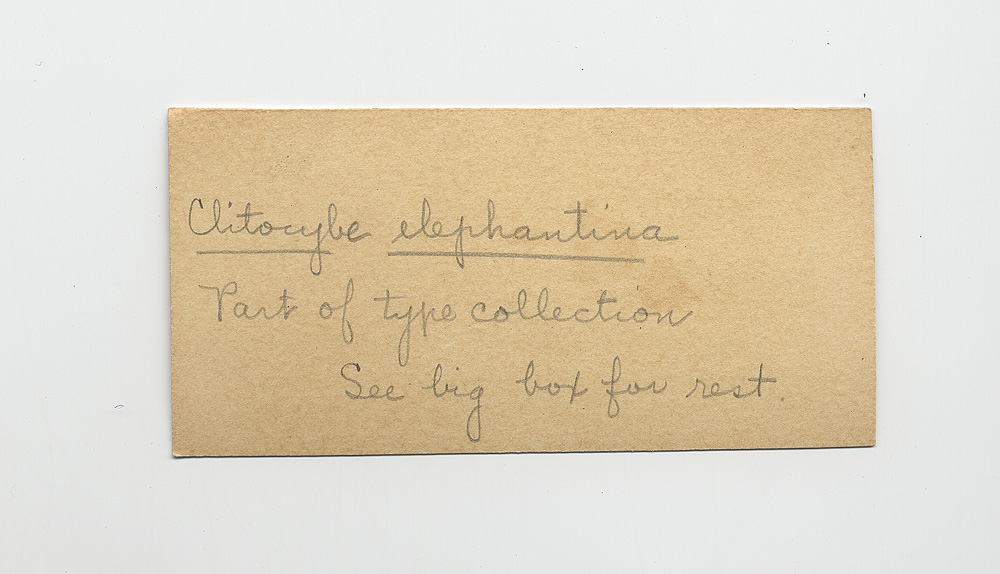 Clitocybe elephantina
Part of type collection
See big box for rest.